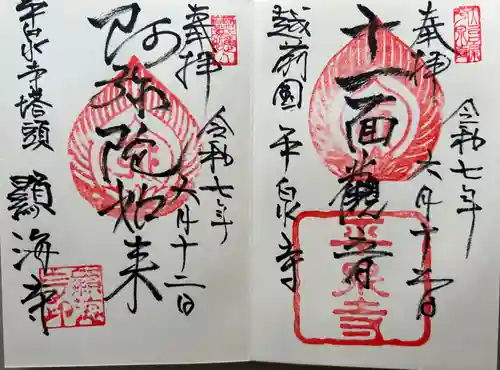 奉拝
令和七年六月十二日
十一面觀音
越前國 平泉寺
平泉寺
奉拝
令和七年六月十二日
阿弥陀如来
平泉寺塔頭 顯海寺